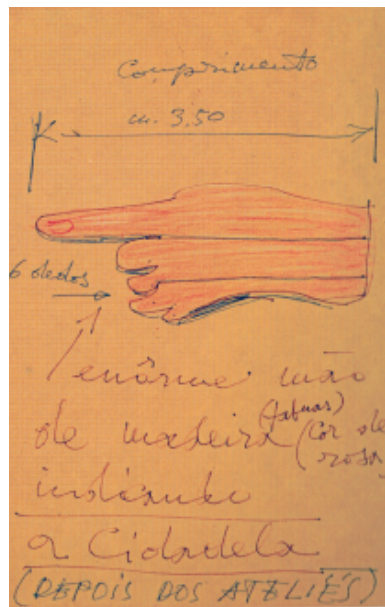 Comprimento
m. 3.50
6 dedos
enôrme mão
de madeira (tabuas) (cor de rosa)
indicando
a Cidadela
(DEPOIS DOS ATELIÊS)